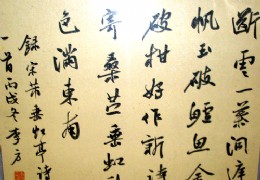 斷雲一葉洞庭
帆玉破鱸魚金
破柑好作新詩
寄桑苎垂虹
色滿東南
錄宋米芾垂虹亭詩
一首丙戌冬李方